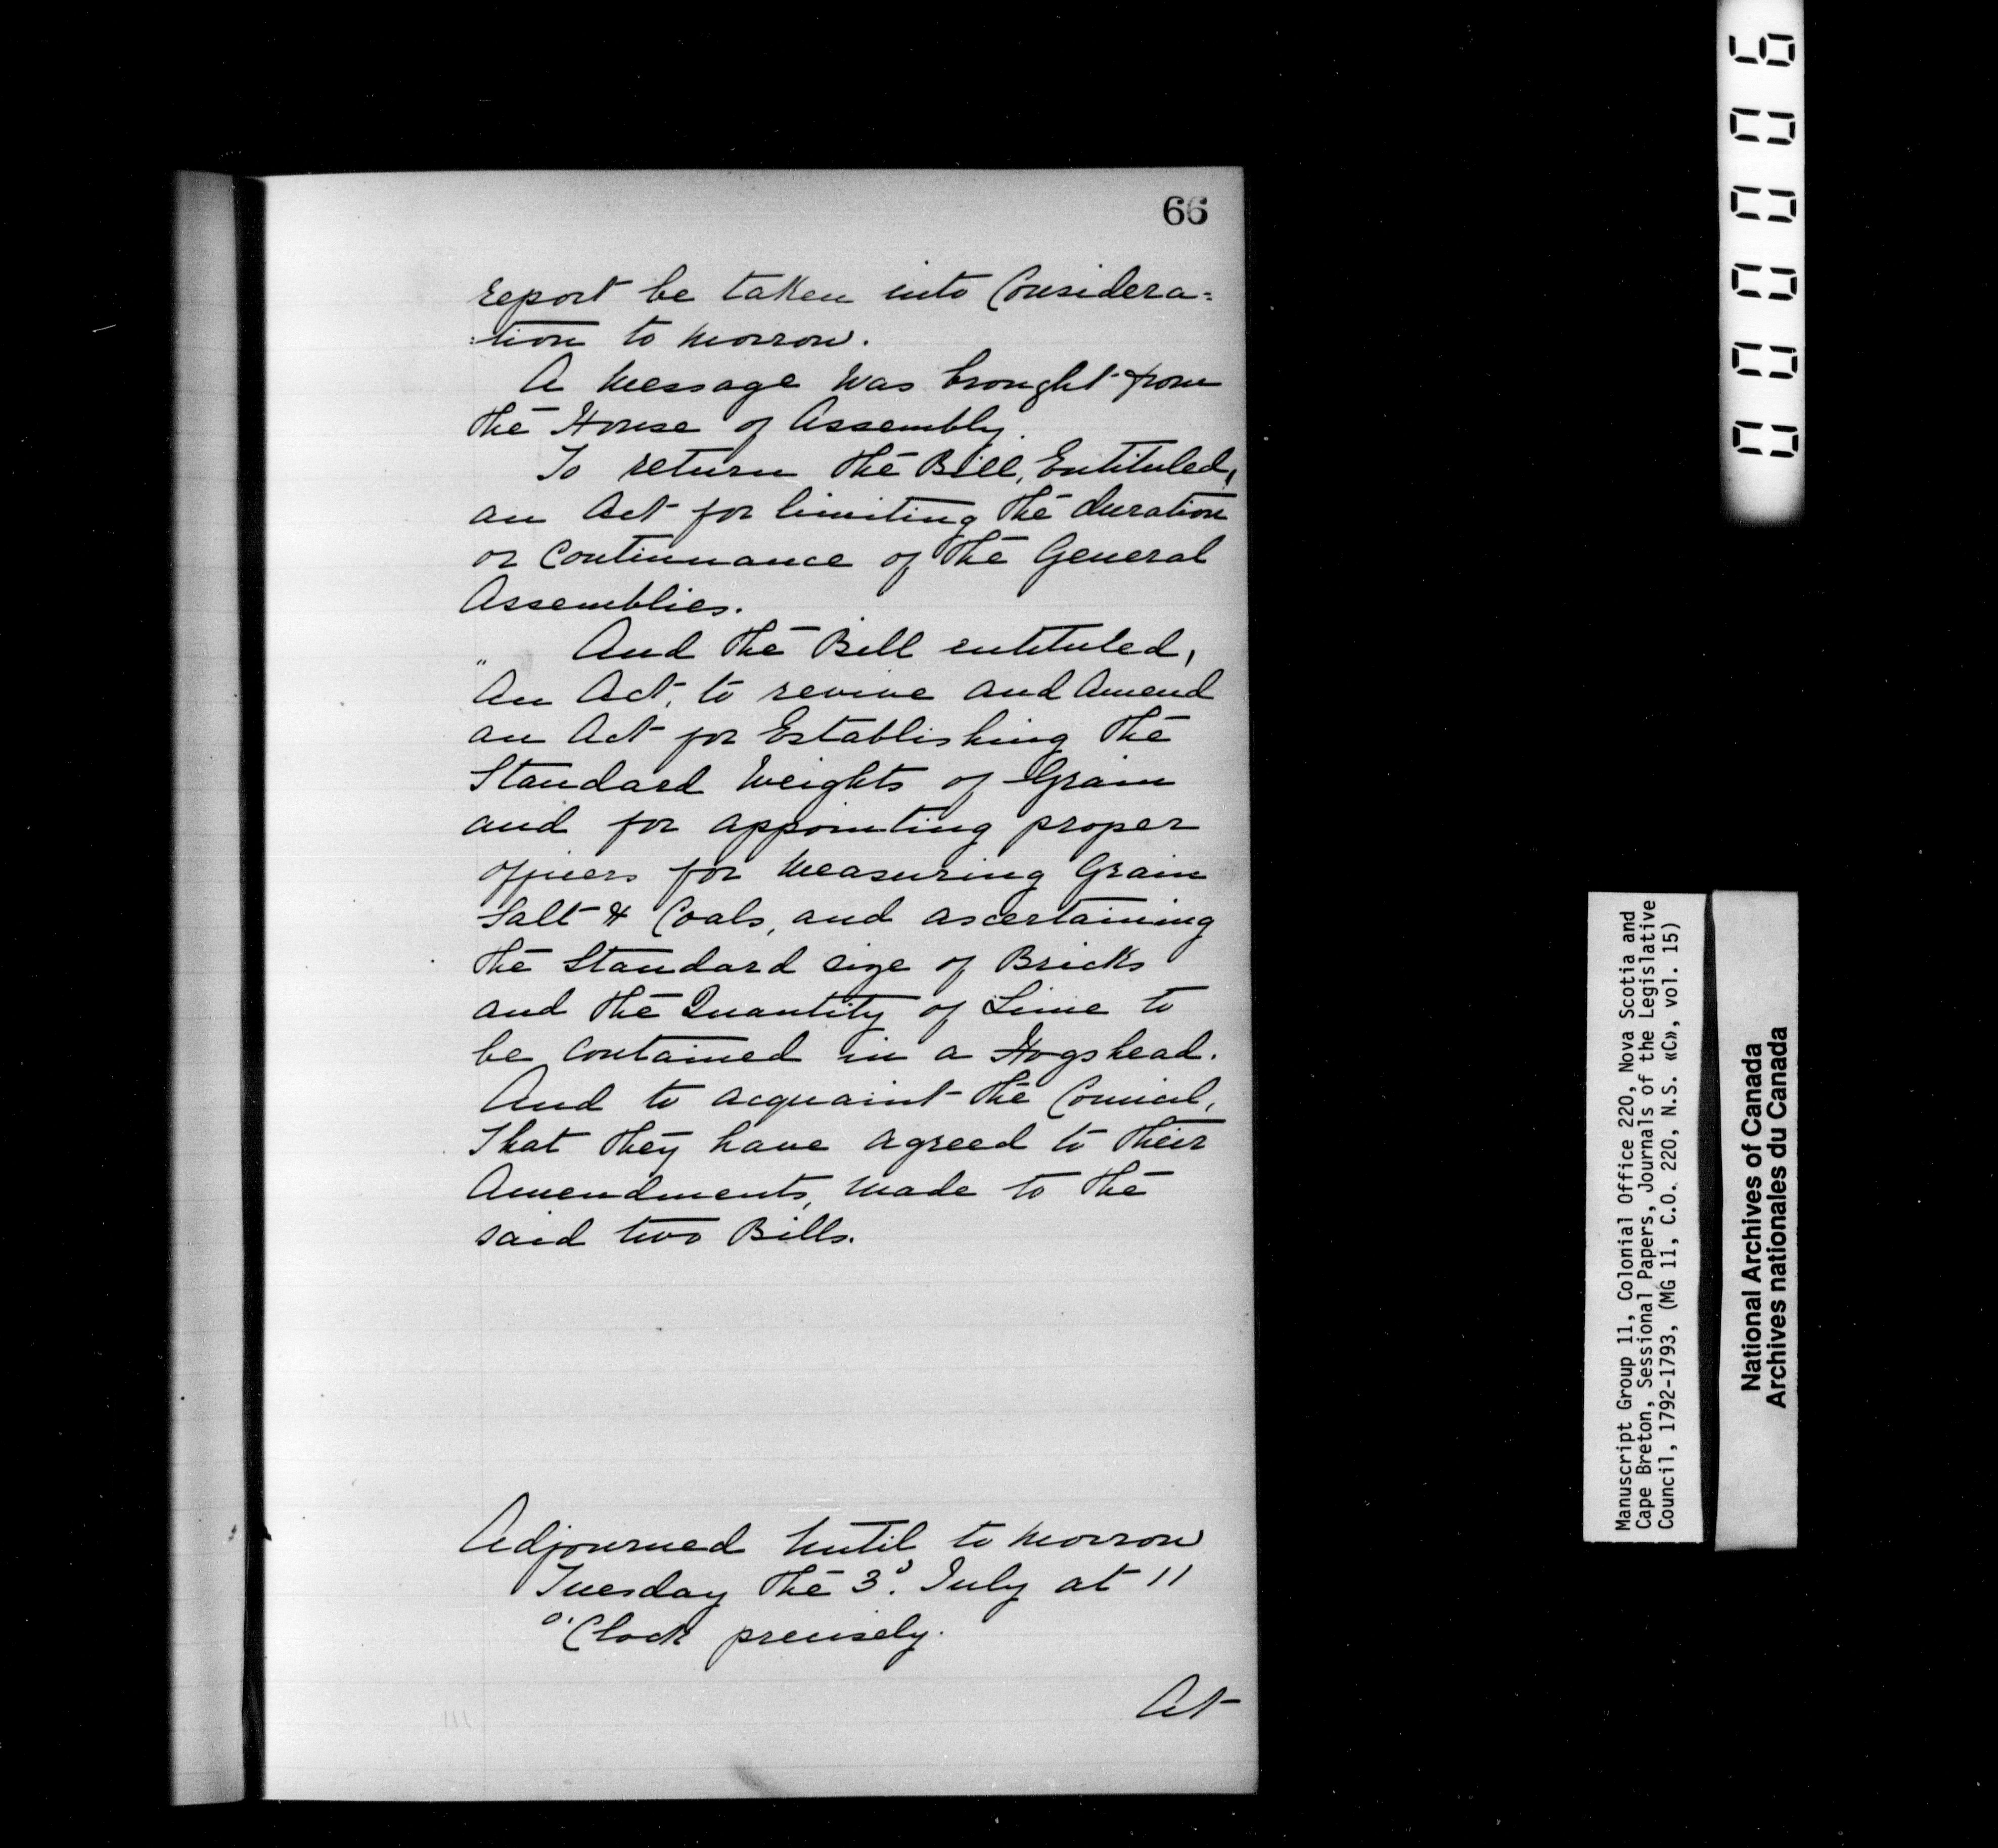 66
report be taken into Considera=
=tion to morrow.
A Message was brought from
the House of Assembly.
To return the Bill, Entituled,
an Act for limiting the duration
or Continuance of the General
Assemblies.
" And the Bill entituled,
An Act, to revive and Amend
an Act for Establishing the
Standard Weights of Grain
and for appointing proper
officers for Measuring Grain
Salt & Coals, and ascertaining
the Standard size of Bricks
and the Quantity of Lime to
be contained in a Hogshead.
And to acquaint the Council,
That they have agreed to their
Amendments, Made to the
said two Bills.
Adjourned Until to Morrow
Tuesday the 3d. July at 11
O'Clock precisely.
At
000006
Manuscript Group 11, Colonial Office 220, Nova Scotia and
Cape Breton, Sessional Papers, Journals of the Legislative
Council, 1792-1793, (MG 11, C.O. 220, N.S. «C», vol. 15)
National Archives of Canada
Archives nationales du Canada